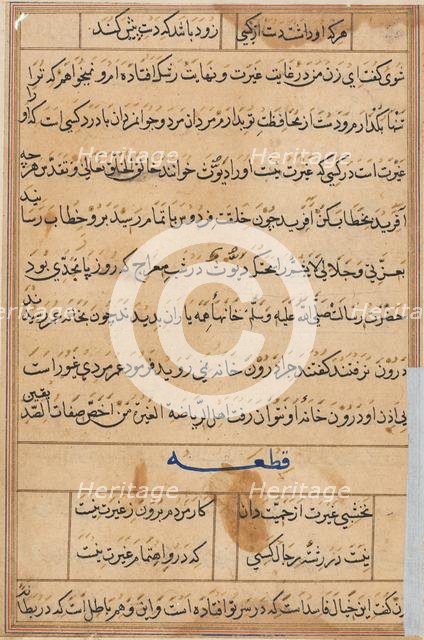 هر که او را از کسی زود باشد که دست پیش کند
شوی گفت ای زن من در غایت غیرت و نهایت رشک افتاده ام و نمیخواهم که ترا
تنها بگذارم و دست از محافظت تو بدارم مردان مرد و جوانمردان با درد کسی است که او را
غیرت است در کسی که غیرت نیست او را دیوث خوانند خالق الخلق تعالی و تقدس هر چه
آفرید بخطاب کن آفرید چون خلقت فردوس باتمام رسید برو خطاب رسانید
بعزتی و جلالی لا رایحتک دیوث در شب معراج که روز بود
حضرت رسالت صلی الله علیه وسلم خانهاء همه یاران بدیدند چون بخانه عمر رسیدند
درون نرفتند گفتند چرا درون خانه نمی روید فرمود عمر مردی غیور است
بی اذن او درون خانه او نتوان رفت اهل الریاضة الغیرة من اخص صفات الصدیقین
قطعه
نخشبی غیرت از حمیت دان کار مردم برون ز غیرت نیست
نیست در رسته رجال کسی که درو اهتمام غیرت نیست
زن گفت این خیال فاسد است که در سر تو افتاده است و این وهم باطل است که در
Heritage